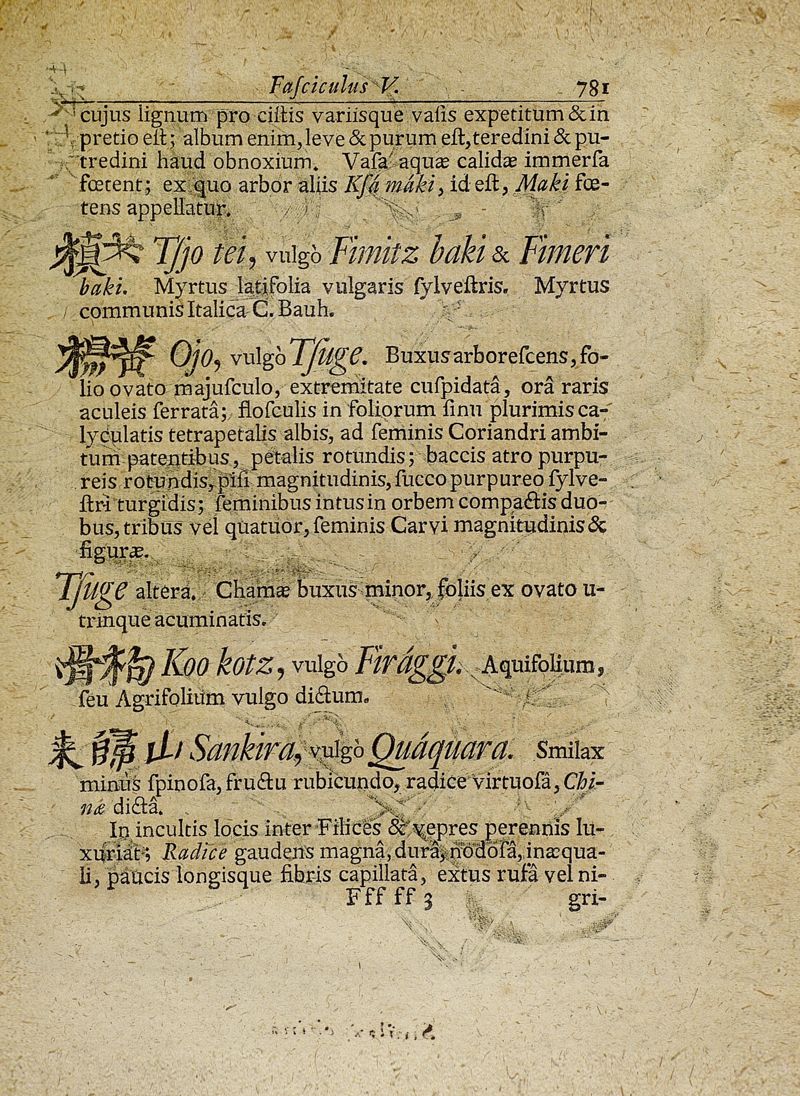 Faſciculus V. 781
cujus lignum pro ciſtis variisque vaſis expetitum & in
pretio eſt; album enim, leve & purum eſt, teredini & pu-
tredini haud obnoxium. Vaſa aquæ calidæ immerſa
fœtent; ex quo arbor aliis Kſá máki, id eſt, Maki fœ-
tens appellatur.
Tſjo tei, vulgò Fimitz baki & Fimeri
baki. Myrtus latifolia vulgaris ſylveſtris. Myrtus
communis Italica C. Bauh.
楊黃 Ojo, vulgò Tſuge. Buxus arboreſcens, fo-
lio ovato majuſculo, extremitate cuſpidatâ, orâ raris
aculeis ſerratâ; floſculis in foliorum ſinu plurimis ca-
lyculatis tetrapetalis albis, ad ſeminis Coriandri ambi-
tum patentibus, petalis rotundis; baccis atro purpu-
reis rotundis, piſi magnitudinis, ſucco purpureo ſylve-
ſtri turgidis; ſeminibus intus in orbem compactis duo-
bus, tribus vel quatuor, ſeminis Carvi magnitudinis &
figuræ.
Tſuge altera. Chamæ buxus minor, foliis ex ovato u-
trinque acuminatis.
滑枸 Koo kotz, vulgò Firággi. Aquifolium,
ſeu Agrifolium vulgo dictum.
山 Sankira, vulgò Quáquara. Smilax
minus ſpinoſa, fructu rubicundo, radice virtuoſâ, Chi-
næ dictâ.
In incultis locis inter Filices & vepres perennis lu-
xuriat; Radice gaudens magnâ, durâ, nodoſâ, inæqua-
li, paucis longisque fibris capillatâ, extus rufâ vel ni-
Fff ff 3 gri-